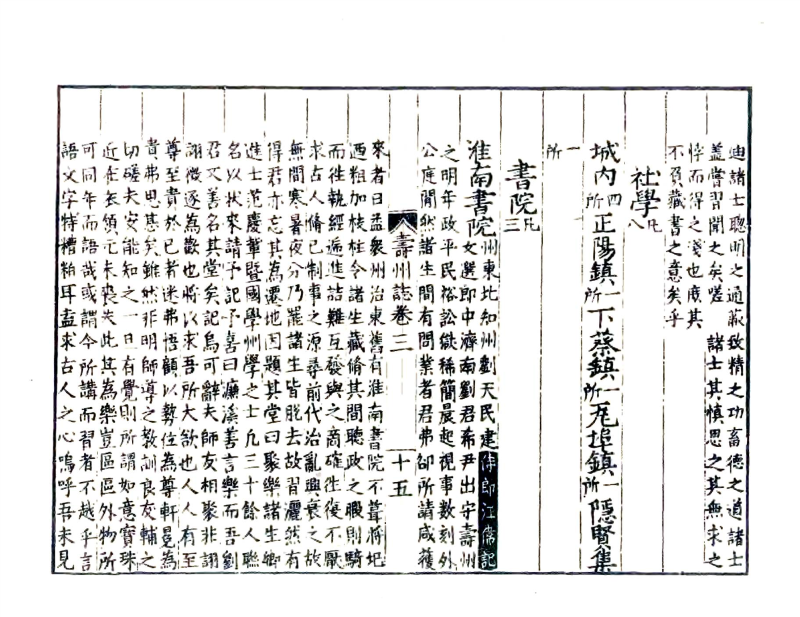 迪諸士聰明之通蔽致精之功畜德之道諸士
蓋嘗習聞之矣嗟 諸士其慎思之其無求之
悖而得之淺也庶其
不負藏書之意矣乎
社學凡八
城内四所正陽鎮一所下蔡鎮一所瓦埠鎮一所隱賢集
一所
書院凡三
淮南書院州東北知州劉天民建侍郎江常記
文選郎中濟南劉君希尹出守壽州
之明年政平民裕訟獄稀簡晨起視事數刻外
公庭闃然諸生間有問業者君弗卻所請咸獲
壽州誌卷三 十五
來者日益衆州治東舊有淮南書院不葺將圯
洒粗加枝柱令諸生藏脩其間聽政之暇則騎
而往執經遍進詰難互發與之商確往復不厭
求古人脩已制事之源尋前代治亂興衰之故
無間寒暑夜分乃罷諸生皆脫去故習灑然有
得君亦忘其為遷地因題其堂曰聚樂諸生鄉
進士范慶輩暨國學州學之士凡三十餘人聯
名以狀來請予記予喜曰濂溪善言樂而吾劉
君又善名其堂矣記烏可辭夫師友相聚非詡
詡徵逐為歡也將以求吾所大欲也人人有至
尊至貴於已者迷弗悟顧以勢位為尊軒冕為
貴弗思甚矣雖然非明師導之教訓良友輔之
切磋夫安能知之一日有覺則所謂如意寶珠
近在衣領元未喪失此其為樂豈區區外物所
可同年而語哉或謂今所講而習者不越乎言
語文字特糟粕耳盍求古人之心嗚呼吾未見